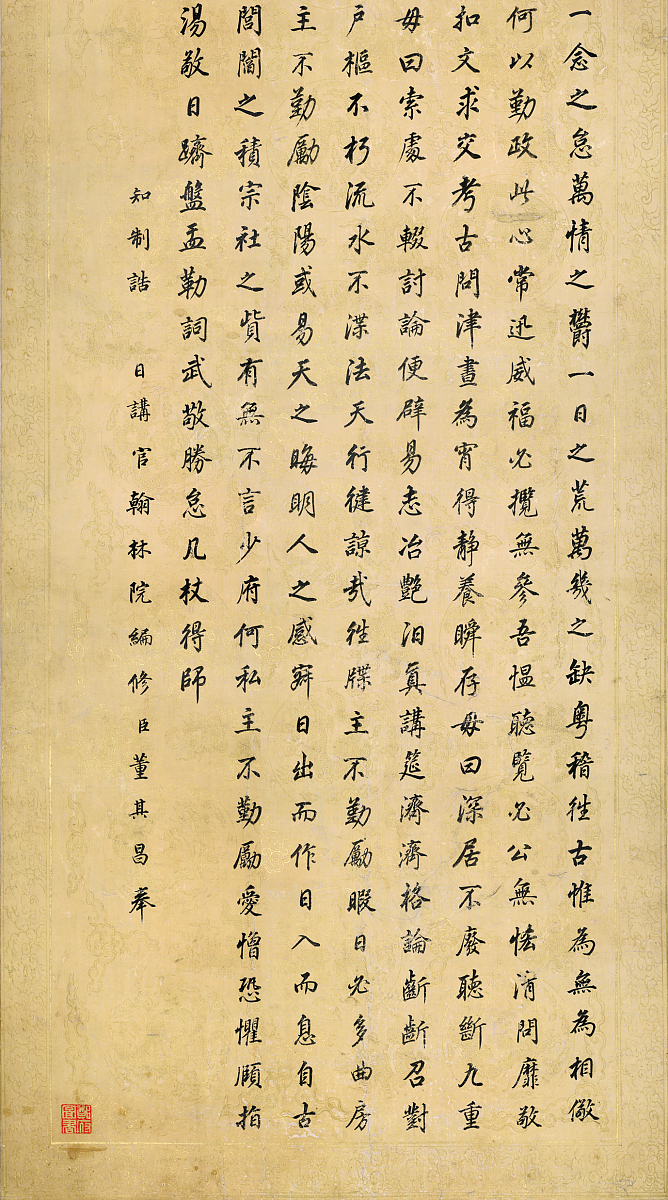 一念之怠萬情之欝一日之荒萬幾之缺粵稽往古惟為無為相儆
何以勤政此心常迅威福必攬無參吾愠聽覽必公無恡清問靡敬
扣文求交考古問津晝為宵得靜養瞬存毋曰深居不廢聽斷九重
毋曰索處不輟討論便辟易志冶艷汨真講筵濟濟格論齗齗召對
戶樞不朽流水不渫法天行健諒哉往牒主不勤勵暇日必多曲房
主不勤勵陰陽或易天之晦明人之感寤日出而作日入而息自古
閭閻之積宗社之貲有無不言少府何私主不勤勵愛憎恐懼頤指
湯敬日躋盤盂勒詞武敬勝怠几杖得師
知制誥 日講官翰林院編修臣董其昌奉